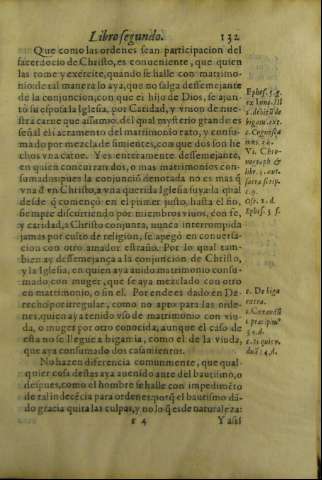 Libro segundo. 132
Que como las ordenes sean participacion del
sacerdocio de Christo, es conueniente, que quien
las tome y exercite, quando se halle con matrimo-
nio: de tal manera lo aya, que no salga dessemejante
de la conjuncion, con que el hijo de Dios, se ajun-
tò su esposa la Iglesia, por Caridad, y vnion de nue-
stra carne que assumio. del qual mysterio grande es
señal el sacramento del matrimonio rato, y consu-
mado por mezcla de simientes, con que dos son he
chos vna carne. Y es enteramente dessemejante,
en quien concurran dos, o mas matrimonios con-
sumados: pues la conjunciõ denotada no es mas q̃
vna d̃ vn Christo, a vna querida Iglesia suya: la qual
desde q̃ començò en el primer justo, hasta el fin,
siempre discurriendo por miembros viuos, con fe,
y caridad, a Christo conjunta, nunca interrompida
jamas por culto de religion, se apegò en conuersa-
cion con otro amador estraño. Por lo qual tam-
bien ay dessemejança a la conjuncion de Christo,
y la Iglesia, en quien aya auido matrimonio consu-
mado con muger, que se aya mezclado con otro
en matrimonio, o sin el. Por ende es dado en De-
recho por irregular, como no apto para las orde-
nes, quien aya tenido vso de matrimonio con viu-
da, o muger por otro conocida; aunque el caso de
esta no se llegue a bigamia, como el de la viuda,
que aya consumado dos casamientos.
No hazen diferencia comunmente, que qual-
quier cosa destas aya auenido ante del bautismo, o
despues, como el hombre se halle con impedimẽto
de tal indecẽcia para ordenes: porq̃ el bautismo dã-
do gracia quita las culpas, y no lo q̃ es de naturaleza:
Y assi
Ephes. 5. g.
Ephes. 5. f.